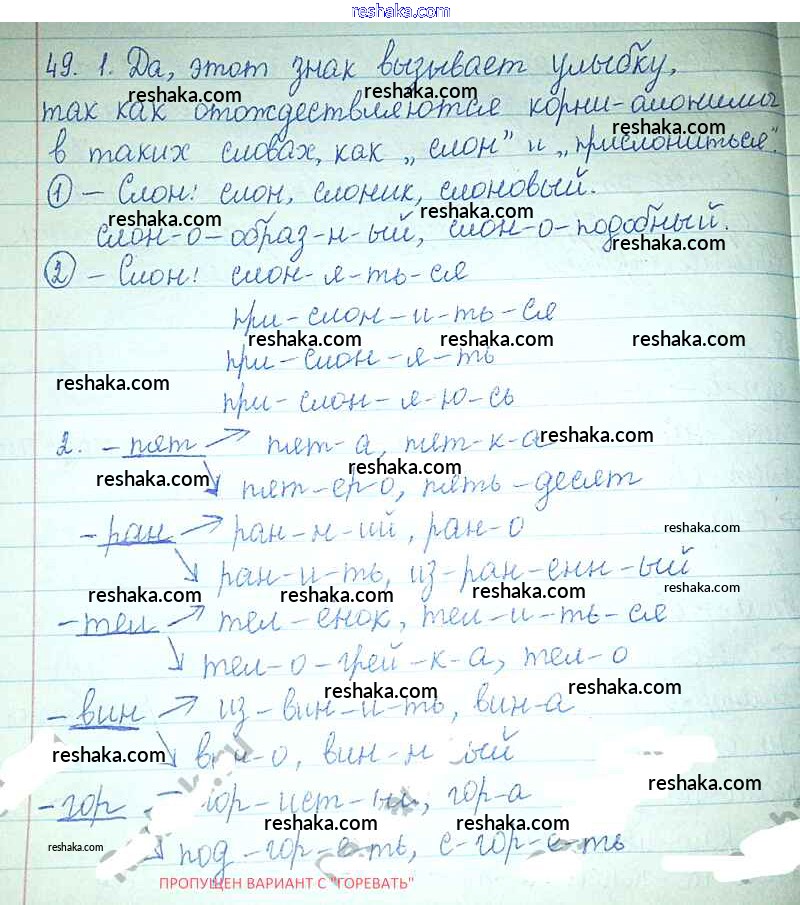 reshaka.com
49. 1. Да, этот знак вызывает улыбку,
reshaka.com reshaka.com
так как отождествляются корни-омонимы
reshaka.com
в таких словах, как „слон" и „прислониться".
① – Слон: слон, слоник, слоновый.
reshaka.com reshaka.com
слон-о-образ-н-ый, слон-о-подобный.
reshaka.com
② – Слон: слон-я-ть-ся
при-слон-и-ть-ся
reshaka.com reshaka.com reshaka.com
при-слон-я-ть
reshaka.com
при-слон-я-ю-сь
2. -пят → пят-а, пят-к-а
reshaka.com reshaka.com
пят-ер-о, пять-десят
-ран → ран-н-ий, ран-о
reshaka.com
ран-и-ть, из-ран-енн-ый
reshaka.com reshaka.com reshaka.com reshaka.com
-тел → тел-енок, тел-и-ть-ся
тел-о-грей-к-а, тел-о
reshaka.com reshaka.com
-вин → из-вин-и-ть, вин-а
reshaka.com
вин-о, вин-н-ый
reshaka.com
-гор гор-ист-ый, гор-а
reshaka.com reshaka.com reshaka.com
под-гор-е-ть, с-гор-е-ть
ПРОПУЩЕН ВАРИАНТ С "ГОРЕВАТЬ"